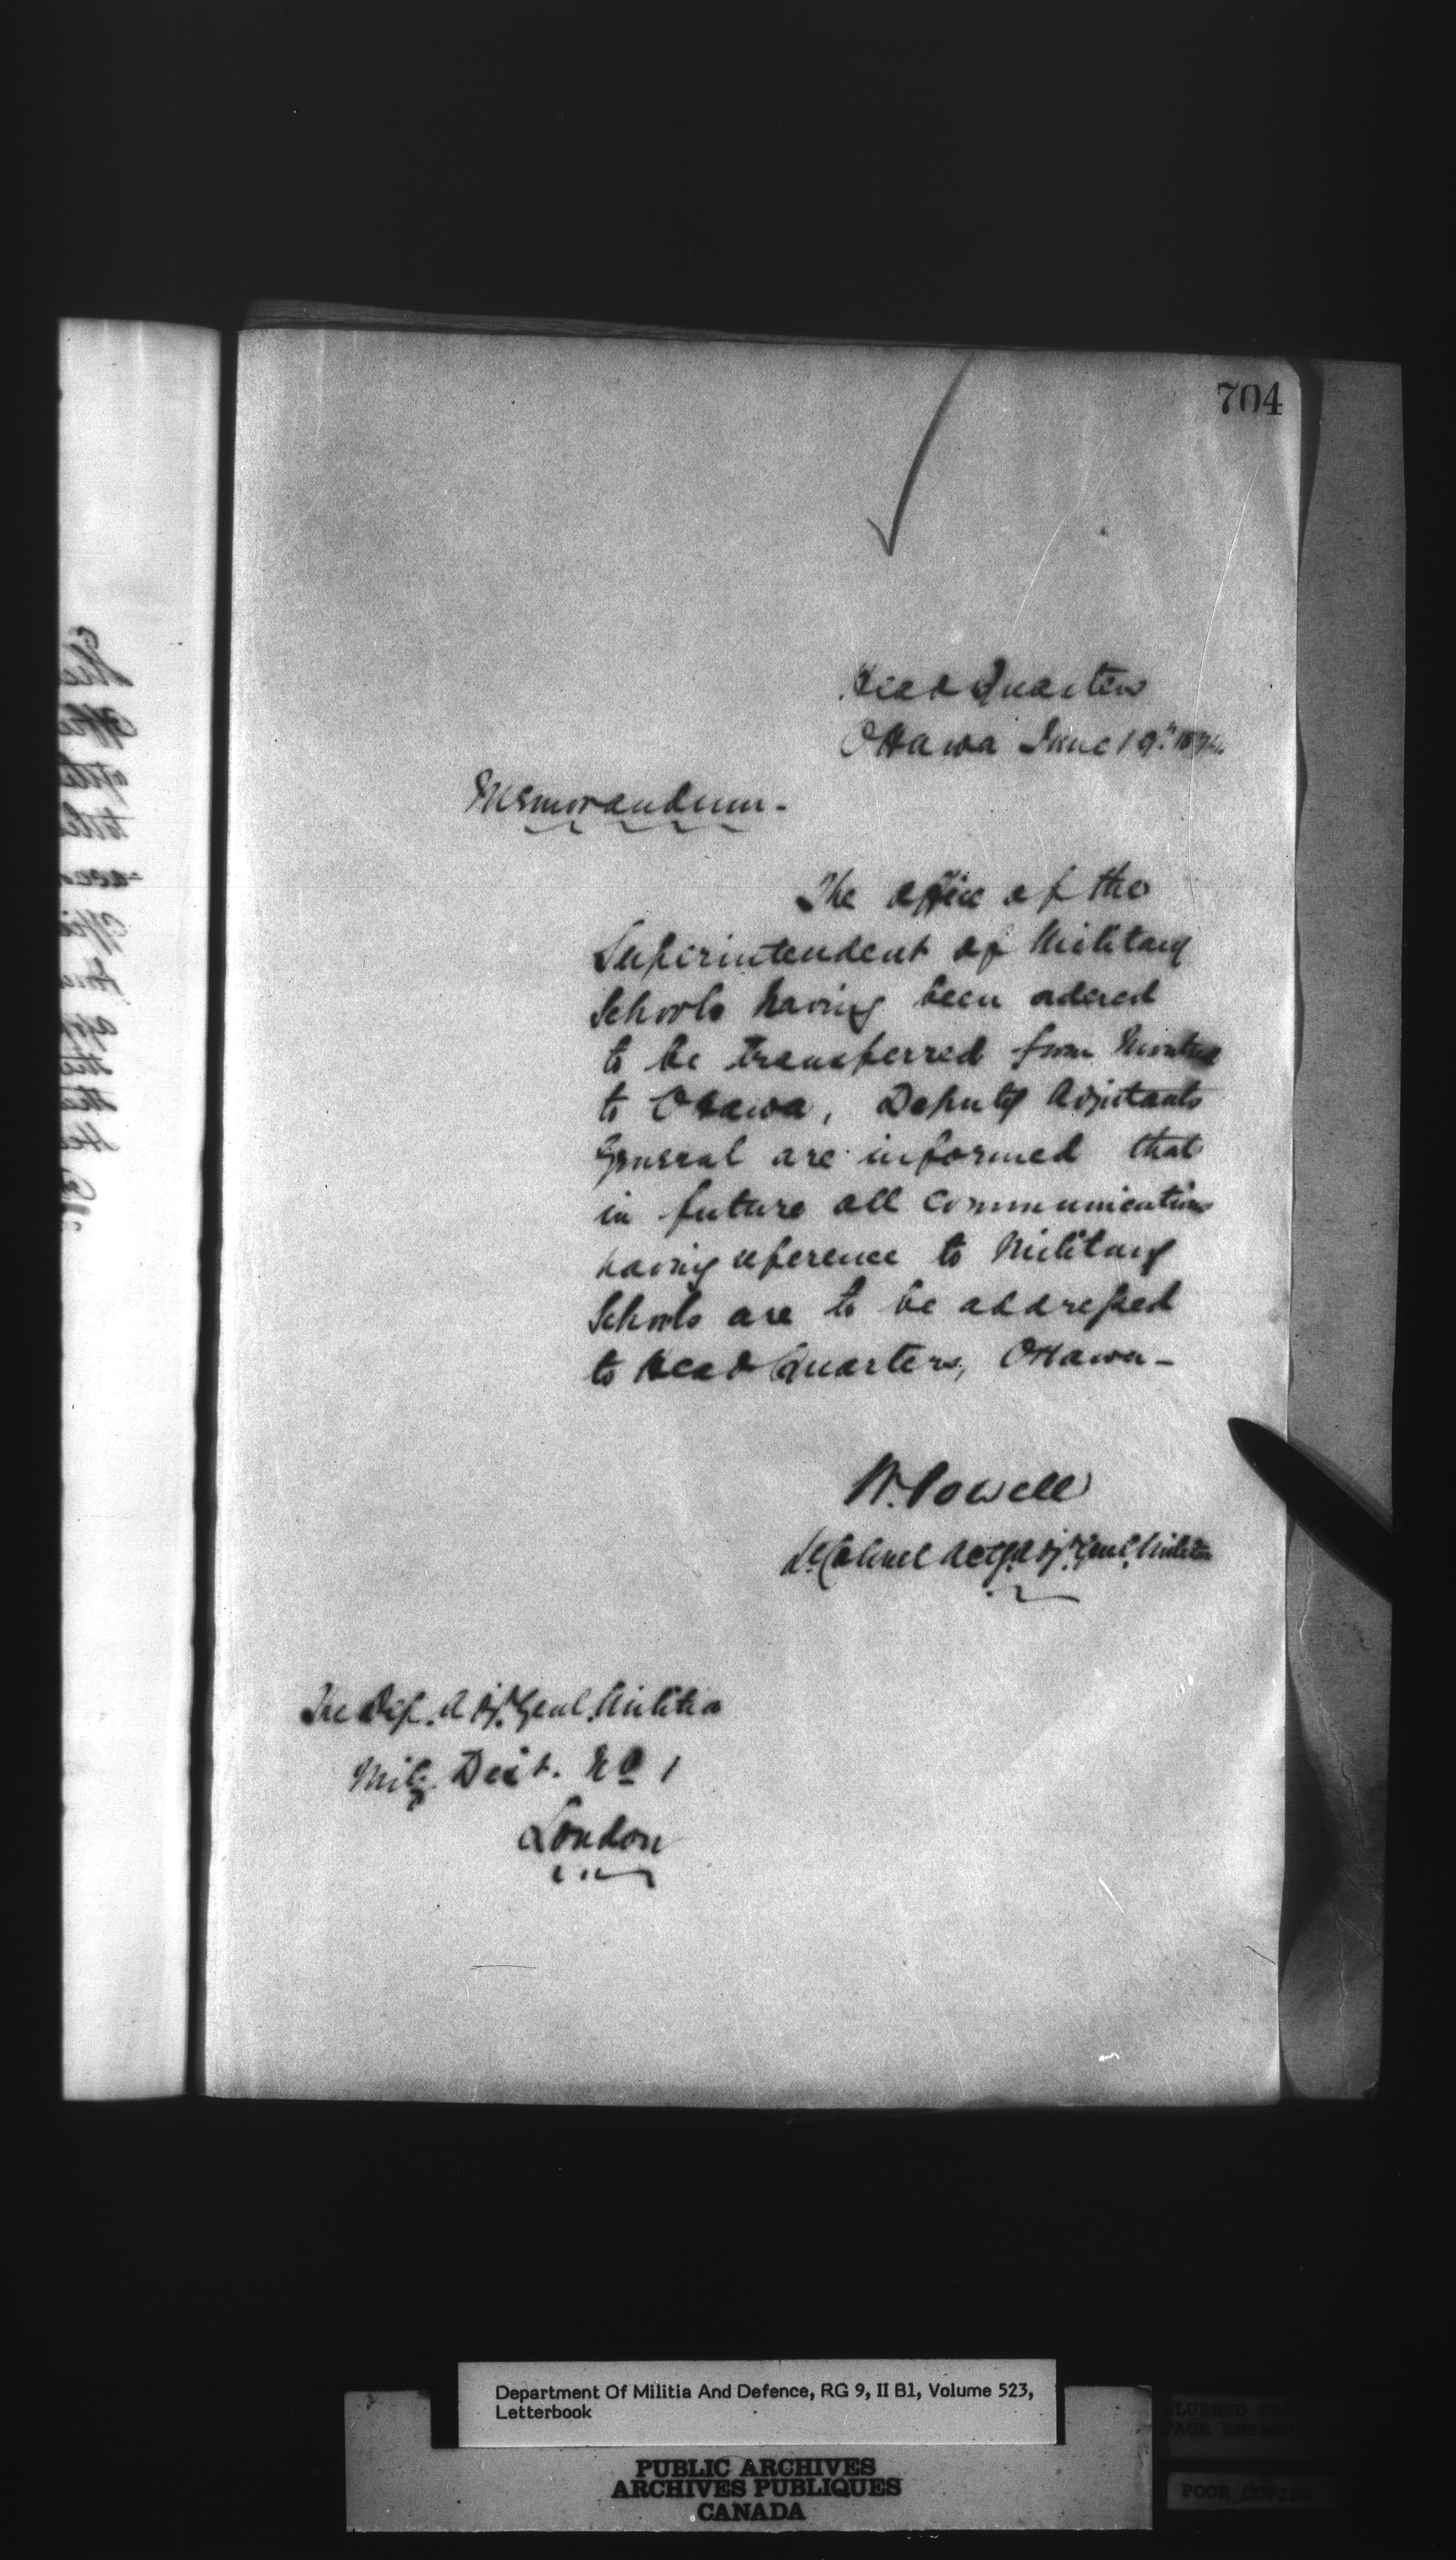 704
Head Quarters
Ottawa June 19th 1874.
Memorandum.
The office of the
Superintendent of Military
Schools having been ordered
to be transferred from Montreal
to Ottawa, Deputy Adjutants
General are informed that
in future all communications
having reference to Military
Schools are to be addressed
to Head Quarters, Ottawa -
W. Powell
Lt. Colonel Actg. Adjt. Genl. Militia
The Dep. Adjt. Genl. Militia
Mily. Dist. No 1
London
Department Of Militia And Defence, RG 9, II B1, Volume 523,
Letterbook
PUBLIC ARCHIVES
ARCHIVES PUBLIQUES
CANADA
BLURRED PAGE
PAGE
POOR COPIES